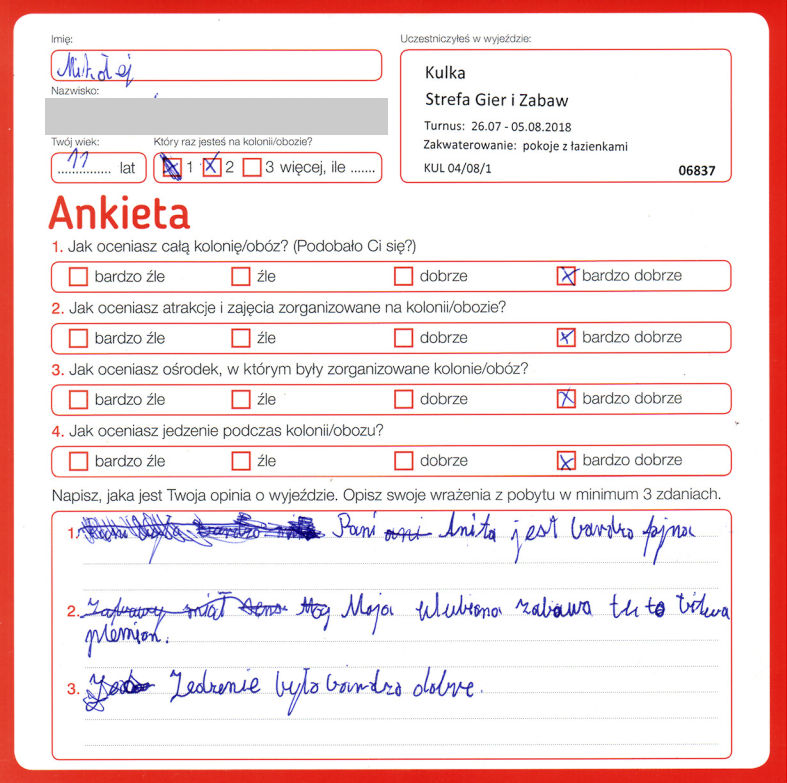 Imię:
Uczestniczyłeś w wyjeździe:
Mikołaj
Kulka
Nazwisko:
Strefa Gier i Zabaw
Turnus: 26.07 - 05.08.2018
Twój wiek:
Który raz jesteś na kolonii/obozie?
Zakwaterowanie: pokoje z łazienkami
11 lat
1 2 3 więcej, ile .......
KUL 04/08/1
06837
Ankieta
1. Jak oceniasz całą kolonię/obóz? (Podobało Ci się?)
bardzo źle źle dobrze bardzo dobrze
2. Jak oceniasz atrakcje i zajęcia zorganizowane na kolonii/obozie?
bardzo źle źle dobrze bardzo dobrze
3. Jak oceniasz ośrodek, w którym były zorganizowane kolonie/obóz?
bardzo źle źle dobrze bardzo dobrze
4. Jak oceniasz jedzenie podczas kolonii/obozu?
bardzo źle źle dobrze bardzo dobrze
Napisz, jaka jest Twoja opinia o wyjeździe. Opisz swoje wrażenia z pobytu w minimum 3 zdaniach.
1. Pani Anita jest bardzo fajna
2. Moja ulubiona zabawa tu to bitwa
plemion.
3. Jedzenie było bardzo dobre.